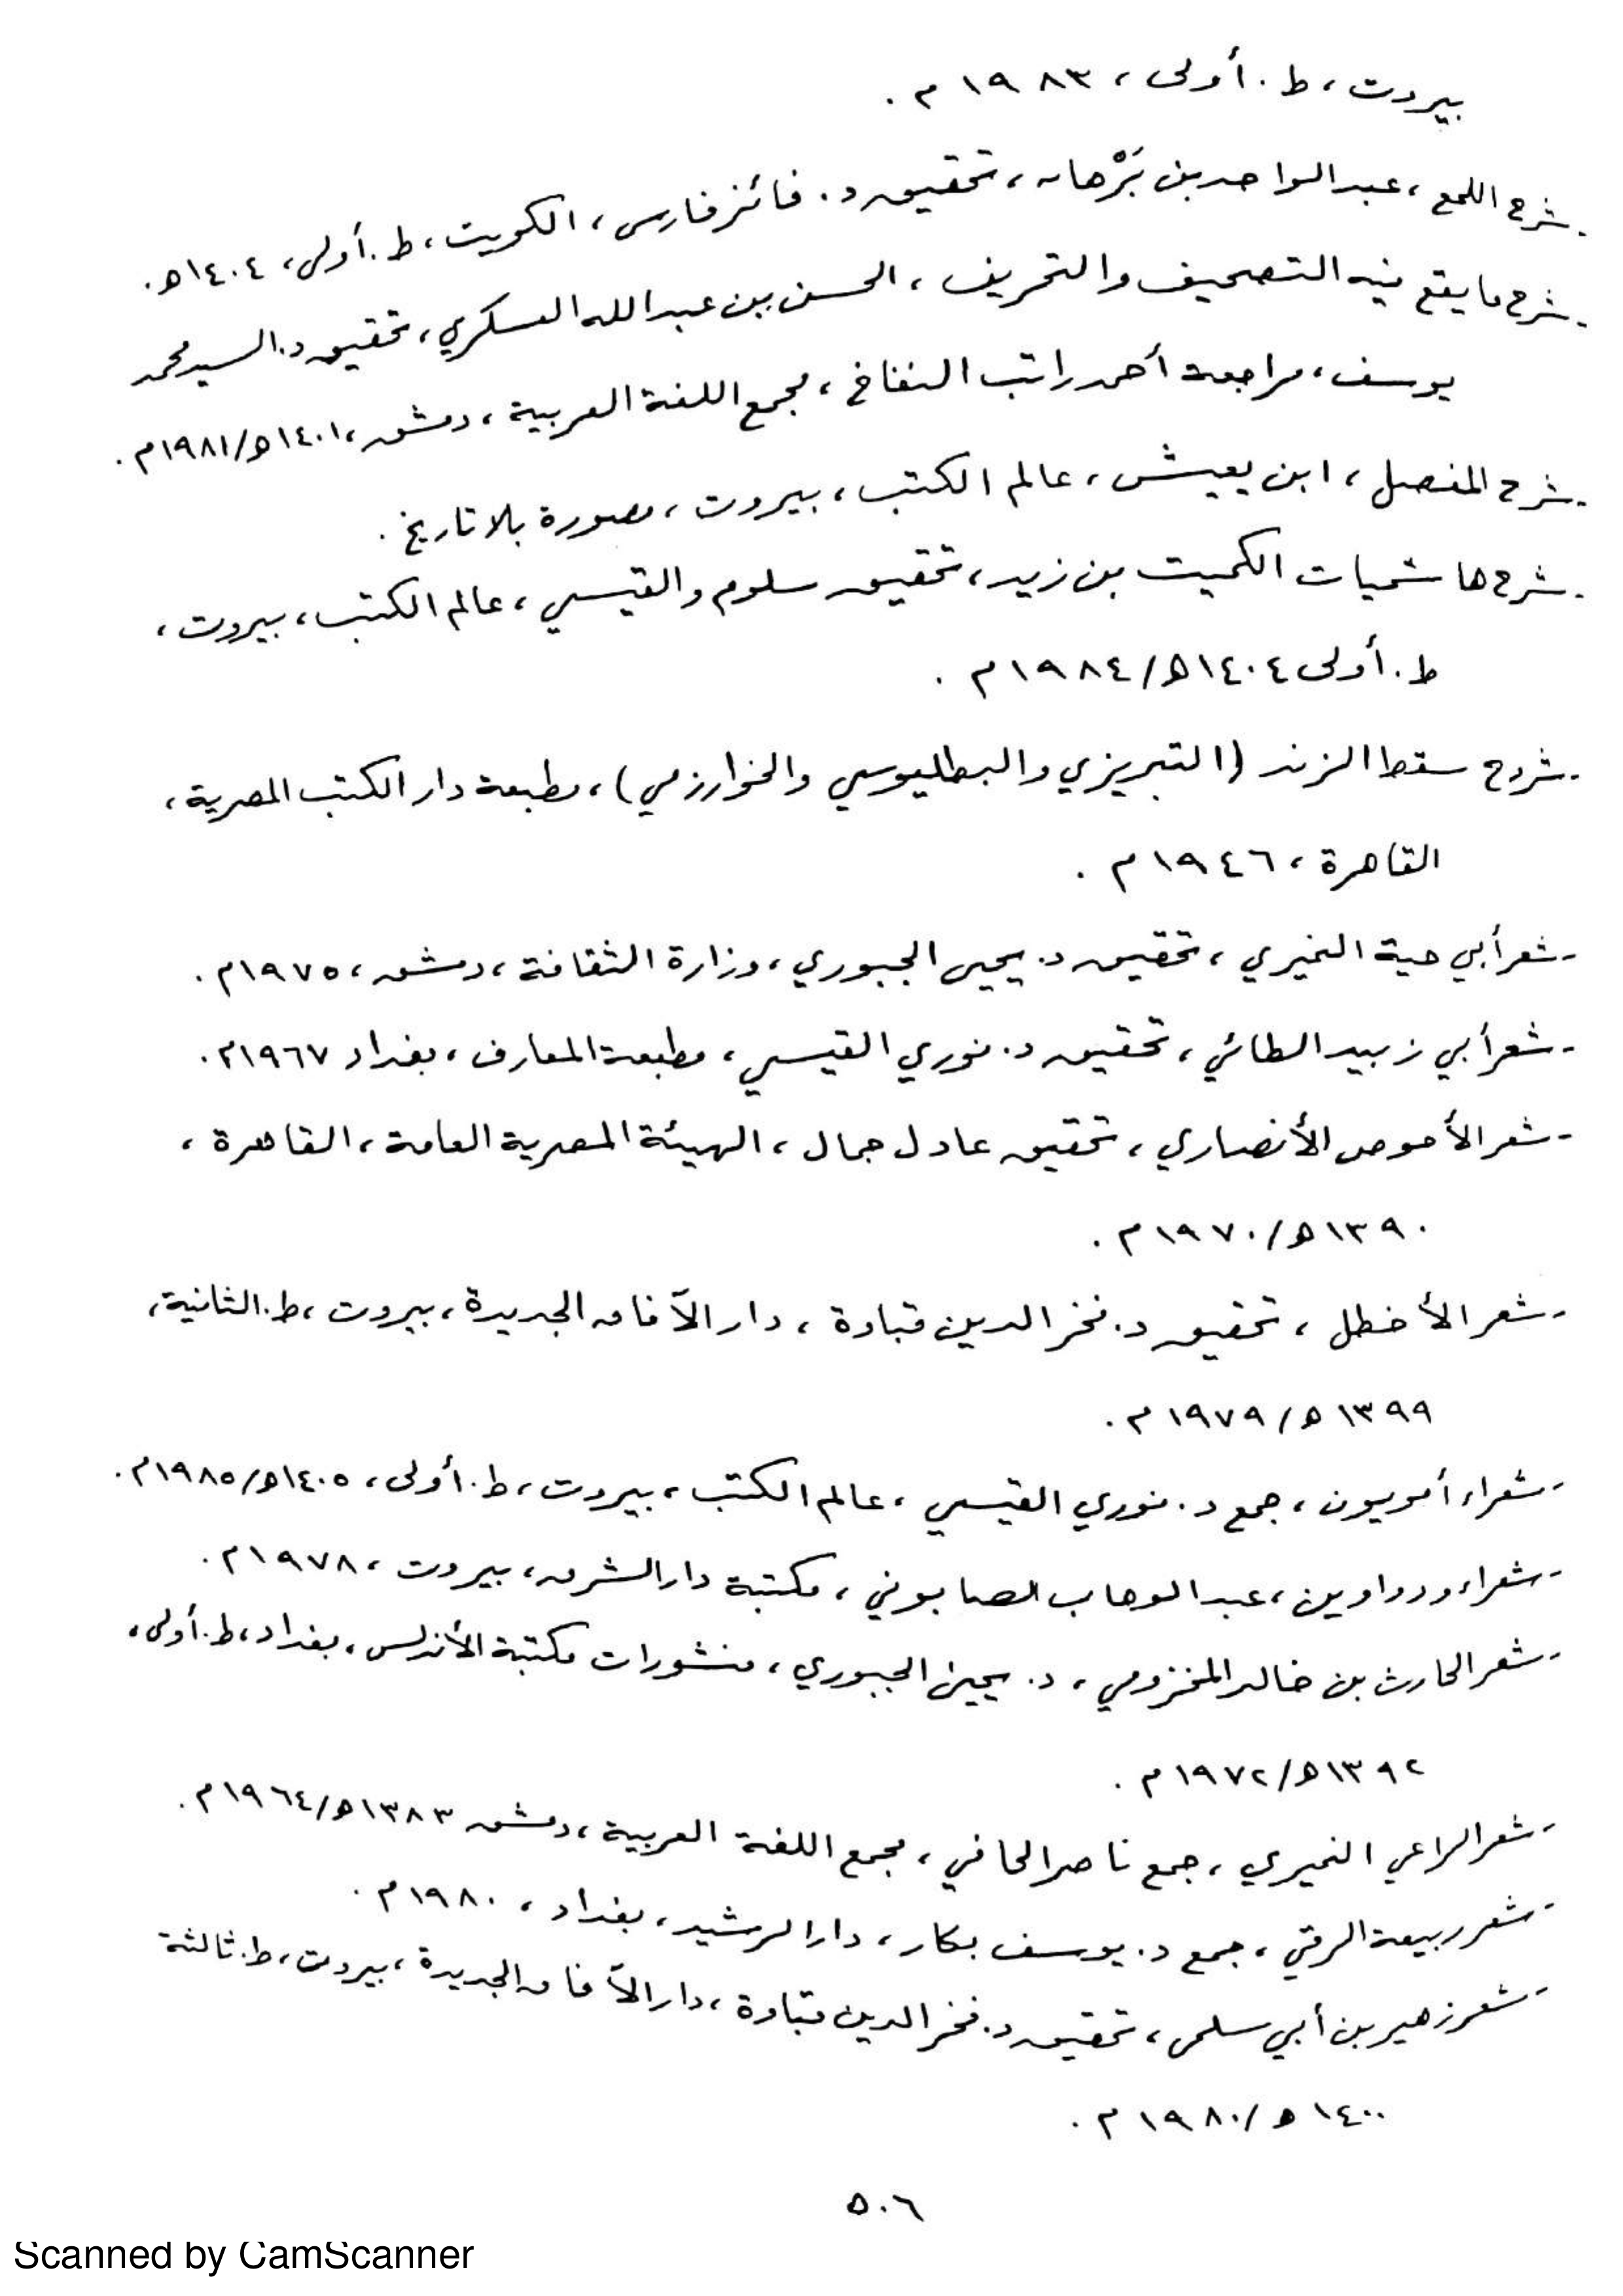 بيروت، ط. أولى، ١٩٨٣م.
- شرح اللمع، عبدالواحد بن بَرْهان، تحقيق د. فائز فارس، الكويت، ط. أولى، ١٤٠٤هـ.
- شرح ما يقع فيه التصحيف والتحريف، الحسن بن عبدالله العسكري، تحقيق د. السيد محمد
يوسف، مراجعة أحمد راتب النفاخ، مجمع اللغة العربية، دمشق، ١٤٠١هـ/١٩٨١م.
- شرح المفصل، ابن يعيش، عالم الكتب، بيروت، مصورة بلا تاريخ.
- شرح هاشميات الكميت بن زيد، تحقيق سلوم والقيسي، عالم الكتب، بيروت،
ط. أولى ١٤٠٤هـ/١٩٨٤م.
- شروح سقط الزند (التبريزي والبطليوسي والخوارزمي)، مطبعة دار الكتب المصرية،
القاهرة، ١٩٤٦م.
- شعر أبي حية النميري، تحقيق د. يحيى الجبوري، وزارة الثقافة، دمشق، ١٩٧٥م.
- شعر أبي زبيد الطائي، تحقيق د. نوري القيسي، مطبعة المعارف، بغداد ١٩٦٧م.
- شعر الأحوص الأنصاري، تحقيق عادل جمال، الهيئة المصرية العامة، القاهرة،
١٣٩٠هـ/١٩٧٠م.
- شعر الأخطل، تحقيق د. فخر الدين قباوة، دار الآفاق الجديدة، بيروت، ط. الثانية،
١٣٩٩هـ/١٩٧٩م.
- شعراء أمويون، جمع د. نوري القيسي، عالم الكتب، بيروت، ط. أولى، ١٤٠٥هـ/١٩٨٥م.
- شعراء ودواوين، عبد الوهاب الصابوني، مكتبة دار الشرق، بيروت، ١٩٧٨م.
- شعر الحارث بن خالد المخزومي، د. يحيى الجبوري، منشورات مكتبة الأندلس، بغداد، ط. أولى،
١٣٩٢هـ/١٩٧٢م.
- شعر الراعي النميري، جمع ناصر الحاني، مجمع اللغة العربية، دمشق ١٣٨٣هـ/١٩٦٤م.
- شعر ربيعة الرقي، جمع د. يوسف بكار، دار الرشيد، بغداد، ١٩٨٠م.
- شعر زهير بن أبي سلمى، تحقيق د. فخر الدين قباوة، دار الآفاق الجديدة، بيروت، ط. ثالثة
١٤٠٠هـ/١٩٨٠م.
٥٠٦
Scanned by CamScanner